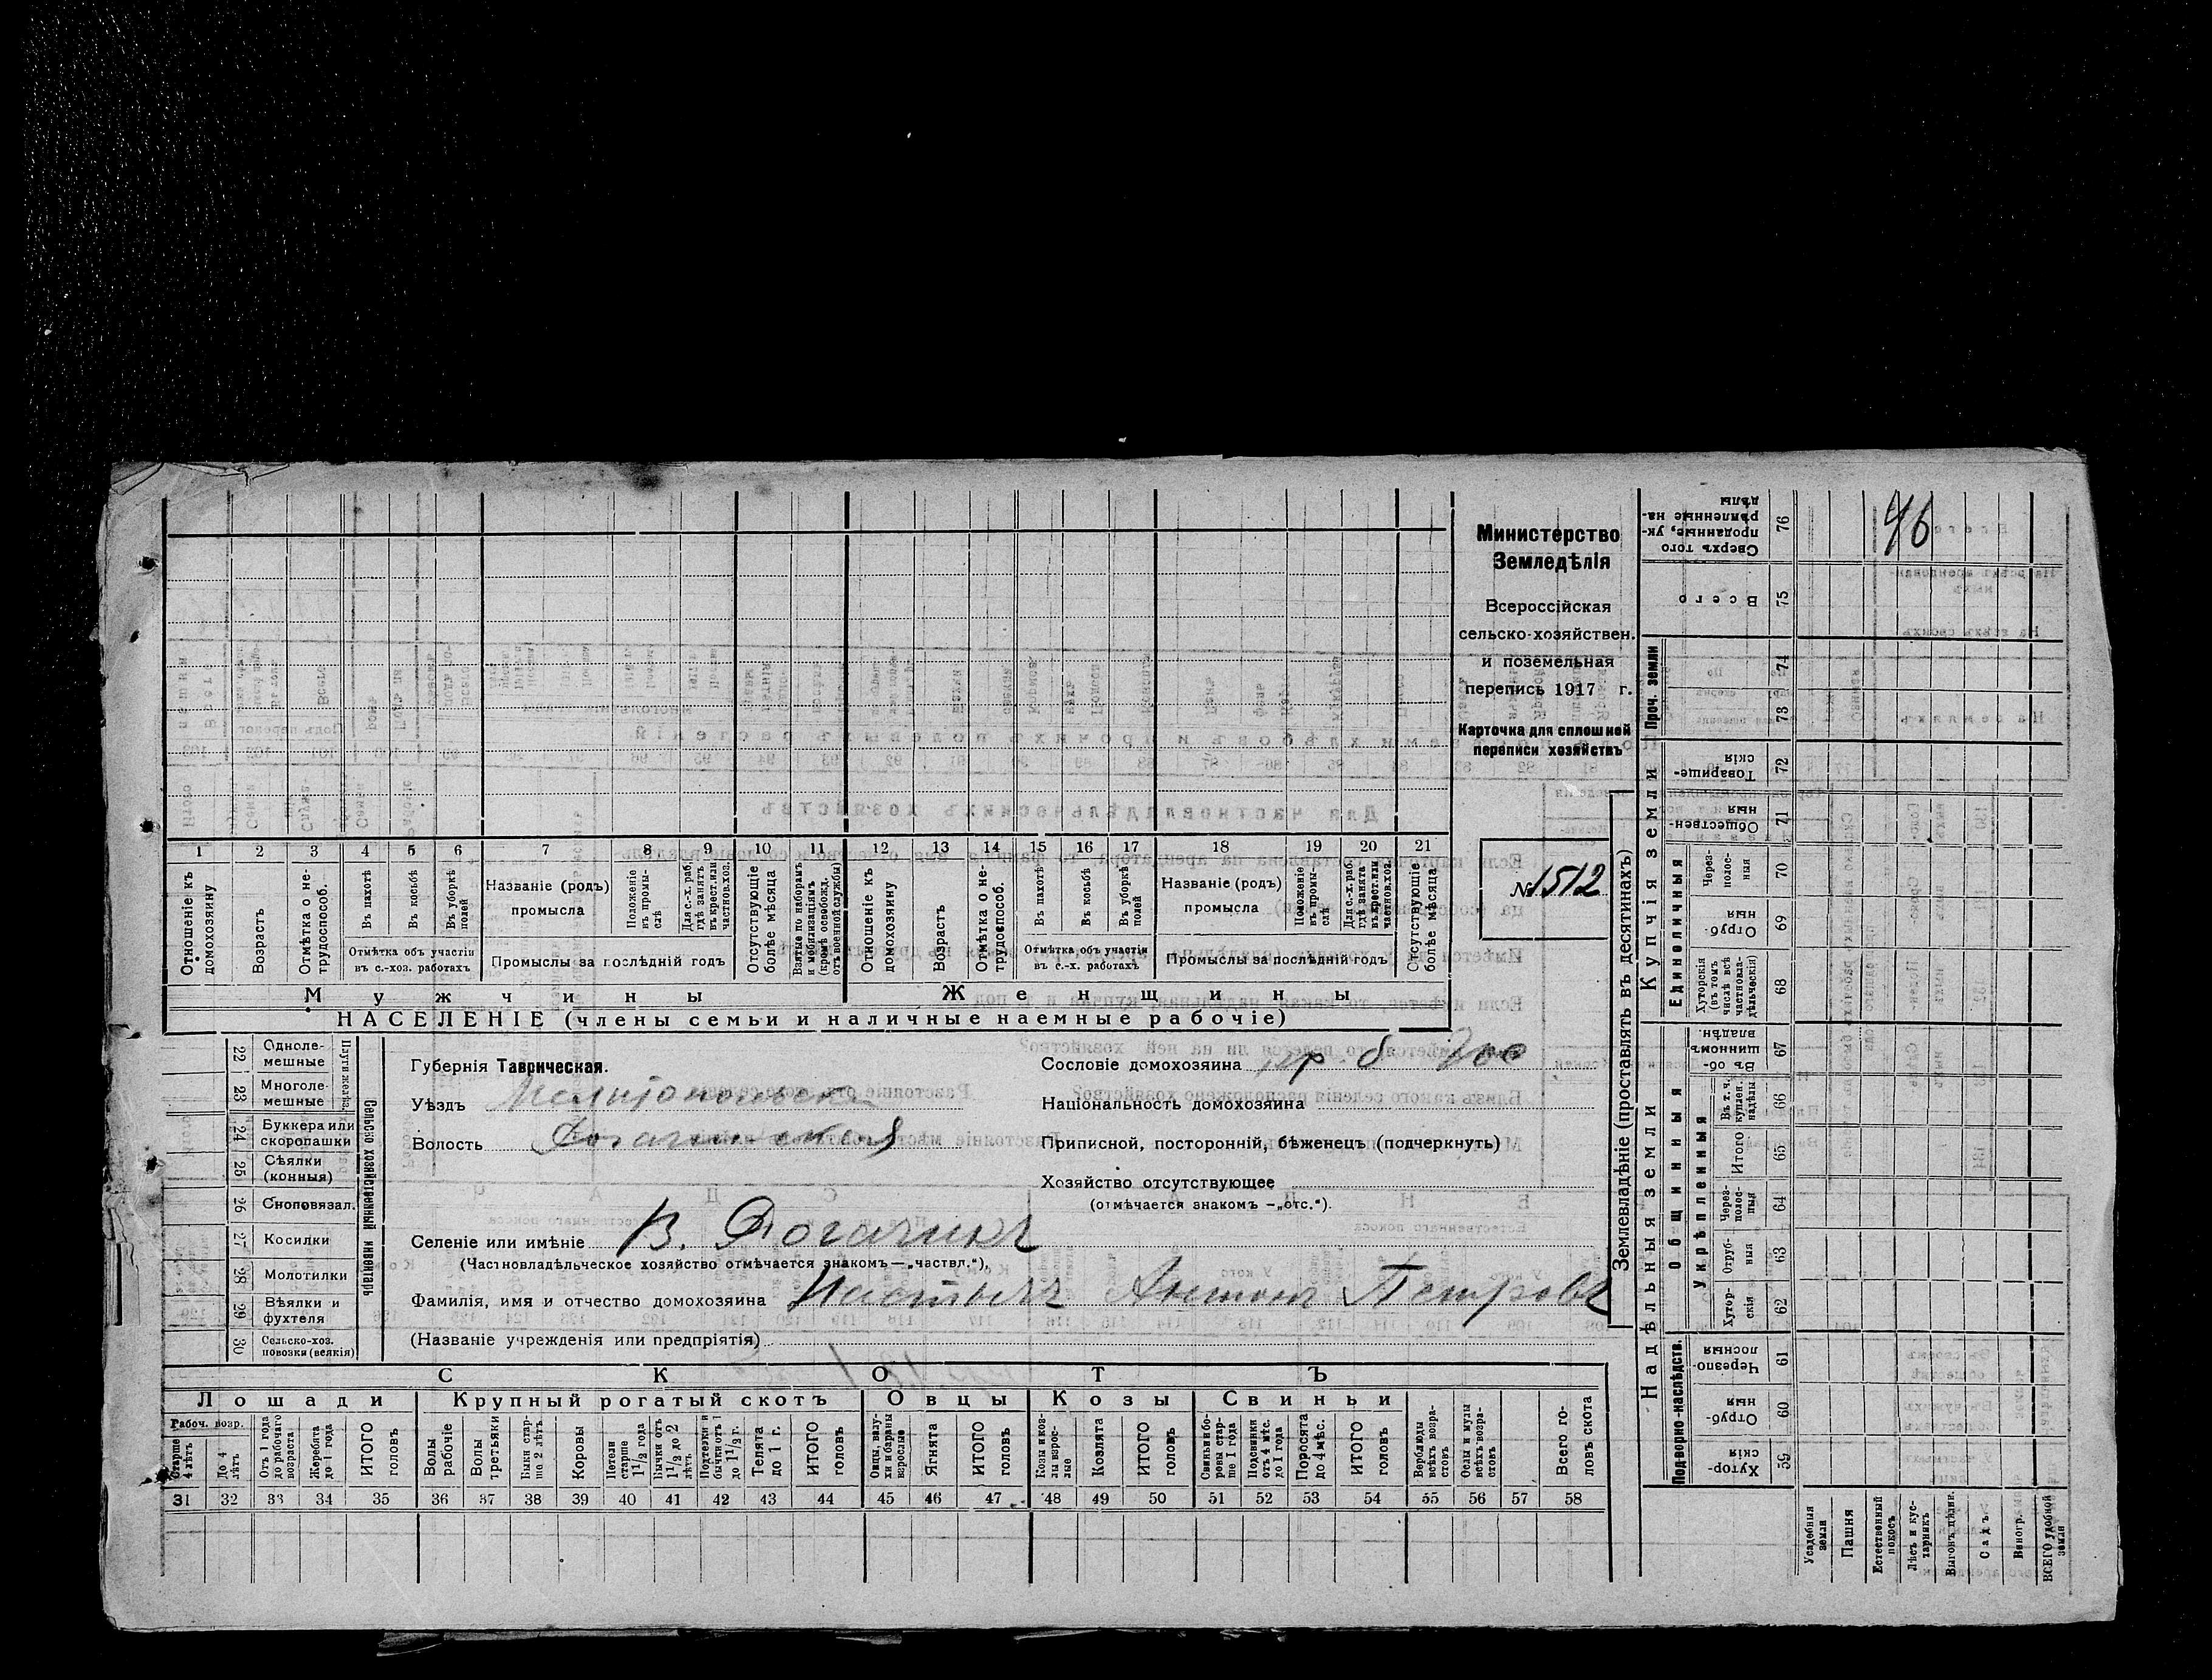 96
Министерство
Земледѣлія
Всероссійская
сельско-хозяйствен.
и поземельная
перепись 1917 г.
Карточка для сплошной
переписи хозяйствъ
№ 1512
1 2 3 4 5 6 7 8 9 10 11 12 13 14 15 16 17 18 19 20 21
Отношеніе къ домохозяину
Возрастъ
Отмѣтка о не-трудоспособ.
Въ пахотѣ
Въ косьбѣ
Въ уборкѣ полей
Отмѣтка объ участіи
въ с.-хоз. работахъ
Названіе (родъ)
промысла
Положеніе въ промы-слѣ
Для с.-х. раб. гдѣ занятъ въ крест. или частнов. хоз.
Промыслы за послѣдній годъ
Отсутствующіе болѣе мѣсяца
Взятые по наборамъ и мобилизаціямъ (кромѣ освобожд. отъ военной службы)
Отношеніе къ домохозяину
Возрастъ
Отмѣтка о не-трудоспособ.
Въ пахотѣ
Въ косьбѣ
Въ уборкѣ полей
Отмѣтка объ участіи
въ с.-х. работахъ
Названіе (родъ)
промысла
Положеніе въ промы-слѣ
Для с.-х. раб. гдѣ занята въ крест. или частнов. хоз.
Промыслы за послѣдній годъ
Отсутствующіе болѣе мѣсяца
Мужчины
Женщины
НАСЕЛЕНІЕ (члены семьи и наличные наемные рабочіе)
22 Однолемешные
23 Многолемешные
Плуги желѣз.
24 Буккера или скоропашки
25 Сѣялки (конныя)
26 Сноповязал.
27 Косилки
28 Молотилки
29 Вѣялки и фухтеля
30 Сельско-хоз. повозки (всякія)
Сельско хозяйственный инвентарь
Губернія Таврическая.
Уѣздъ
Волость
Сословіе домохозяина
Національность домохозяина
Приписной, посторонній, бѣженецъ (подчеркнуть)
Хозяйство отсутствующее
(отмѣчается знакомъ —„отс.“).
Селеніе или имѣніе В. Рогачикъ
(Частновладѣльческое хозяйство отмѣчается знакомъ—„частвл.“),
Фамилія, имя и отчество домохозяина Антонъ Петровъ
(Названіе учрежденія или предпріятія)
СКОТЪ
Лошади
Крупный рогатый скотъ
Овцы
Козы
Свиньи
Рабоч. возр.
Старше 4 лѣтъ
До 4 лѣтъ
Отъ 1 года до рабочаго возраста
Жеребята до 1 года
ИТОГО головъ
Волы рабочіе
Волы третьяки
Быки старше 2 лѣтъ
Коровы
Нетели старше 1 1/2 года
Бычки отъ 1 1/2 до 2 лѣтъ
Подтелки и бычки отъ 1 до 1 1/2 г.
Телята до 1 г.
ИТОГО головъ
Овцы, валухи и бараны взрослые
Ягнята
ИТОГО головъ
Козы и козлы взрослые
Козлята
ИТОГО головъ
Свиньи и боровы старше 1 года
Подсвинки отъ 4 мѣс. до 1 года
Поросята до 4 мѣс.
ИТОГО головъ
Верблюды всѣхъ возрастовъ
Ослы и мулы всѣхъ возрастовъ
Всего головъ скота
31 32 33 34 35 36 37 38 39 40 41 42 43 44 45 46 47 48 49 50 51 52 53 54 55 56 57 58
Землевладѣніе (проставлять въ десятинахъ)
Надѣльныя земли
Купчія земли
Проч. земли
Подворно-наслѣдств.
Общинныя
Укрѣпленныя
Единоличныя
Хуторскія 59
Отрубныя 60
Черезполосныя 61
Хуторскія 62
Отрубныя 63
Черезполосныя 64
Итого 65
Въ т. ч. куплен. надѣлы 66
Въ общинномъ владѣн. 67
Хуторскія (въ томъ числѣ всѣ частновладѣльческія) 68
Отрубныя 69
Черезполосныя 70
Общественныя 71
Товарищескія 72
73
74
Всего 75
Сверхъ того проданные, укрѣпленные надѣлы 76
Усадебныя земли
Пашня
Естественный покосъ
Лѣсъ и кустарникъ
Выгонъ цѣлин.
Садъ
Виногр.
ВСЕГО удобной земли